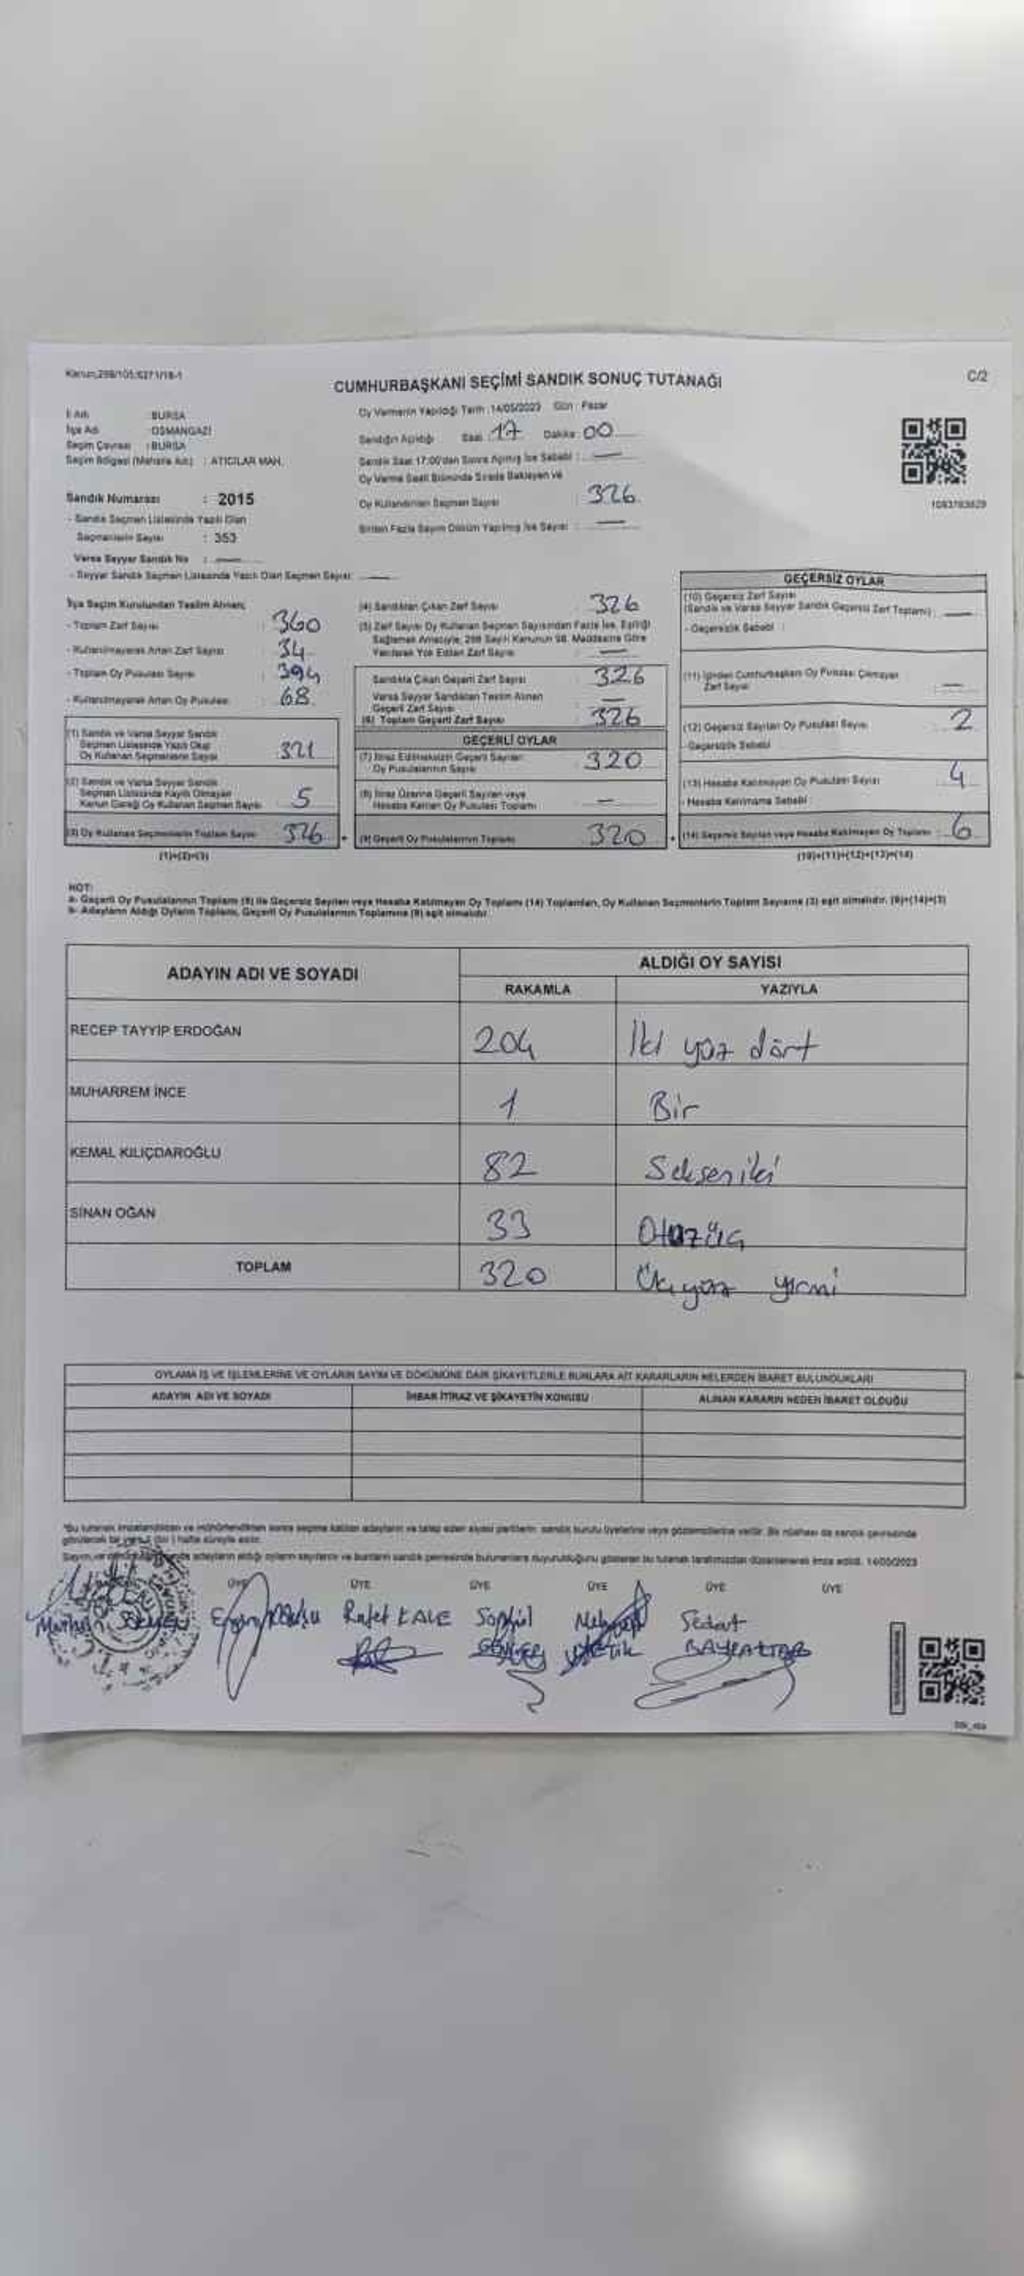 Kanun:298/105;6271/18-1
C/2
CUMHURBAŞKANI SEÇİMİ SANDIK SONUÇ TUTANAĞI
İl Adı : BURSA
İlçe Adı : OSMANGAZİ
Seçim Çevresi : BURSA
Seçim Bölgesi (Mahalle Adı) : ATICILAR MAH.
Oy Vermenin Yapıldığı Tarih : 14/05/2023 Gün : Pazar
Sandığın Açıldığı Saat : 17 Dakika : 00
Sandık Saat 17:00'dan Sonra Açılmış İse Sebebi :
Oy Verme Saati Bitiminde Sırada Bekleyen ve
Oy Kullandırılan Seçmen Sayısı : 326
Birden Fazla Sayım Döküm Yapılmış İse Sayısı :
1093783829
Sandık Numarası : 2015
- Sandık Seçmen Listesinde Yazılı Olan
Seçmenlerin Sayısı : 353
Varsa Seyyar Sandık No :
- Seyyar Sandık Seçmen Listesinde Yazılı Olan Seçmen Sayısı:
İlçe Seçim Kurulundan Teslim Alınan;
- Toplam Zarf Sayısı : 360
- Kullanılmayarak Artan Zarf Sayısı : 34
- Toplam Oy Pusulası Sayısı : 394
- Kullanılmayarak Artan Oy Pusulası : 68
(1) Sandık ve Varsa Seyyar Sandık
Seçmen Listesinde Yazılı Olup
Oy Kullanan Seçmenlerin Sayısı : 321
(2) Sandık ve Varsa Seyyar Sandık
Seçmen Listesinde Kayıtlı Olmayan
Kanun Gereği Oy Kullanan Seçmen Sayısı : 5
(3) Oy Kullanan Seçmenlerin Toplam Sayısı : 326
(1)+(2)=(3)
(4) Sandıktan Çıkan Zarf Sayısı : 326
(5) Zarf Sayısı Oy Kullanan Seçmen Sayısından Fazla İse, Eşitliği
Sağlamak Amacıyla, 298 Sayılı Kanunun 98. Maddesine Göre
Yakılarak Yok Edilen Zarf Sayısı :
Sandıkta Çıkan Geçerli Zarf Sayısı : 326
Varsa Seyyar Sandıktan Teslim Alınan
Geçerli Zarf Sayısı :
(6) Toplam Geçerli Zarf Sayısı : 326
GEÇERLİ OYLAR
(7) İtiraz Edilmeksizin Geçerli Sayılan
Oy Pusulalarının Sayısı : 320
(8) İtiraz Üzerine Geçerli Sayılan veya
Hesaba Katılan Oy Pusulası Toplamı :
(9) Geçerli Oy Pusulalarının Toplamı : 320
GEÇERSİZ OYLAR
(10) Geçersiz Zarf Sayısı
(Sandık ve Varsa Seyyar Sandık Geçersiz Zarf Toplamı) :
- Geçersizlik Sebebi :
(11) İçinden Cumhurbaşkanı Oy Pusulası Çıkmayan
Zarf Sayısı :
(12) Geçersiz Sayılan Oy Pusulası Sayısı : 2
- Geçersizlik Sebebi :
(13) Hesaba Katılmayan Oy Pusulası Sayısı : 4
- Hesaba Katılmama Sebebi :
(14) Geçersiz Sayılan veya Hesaba Katılmayan Oy Toplamı : 6
(10)+(11)+(12)+(13)=(14)
NOT:
a- Geçerli Oy Pusulalarının Toplamı (9) ile Geçersiz Sayılan veya Hesaba Katılmayan Oy Toplamı (14) Toplamları, Oy Kullanan Seçmenlerin Toplam Sayısına (3) eşit olmalıdır. (9)+(14)=(3)
b- Adayların Aldığı Oyların Toplamı, Geçerli Oy Pusulalarının Toplamına (9) eşit olmalıdır.
ADAYIN ADI VE SOYADI
ALDIĞI OY SAYISI
RAKAMLA YAZIYLA
RECEP TAYYİP ERDOĞAN 204 İki yüz dört
MUHARREM İNCE 1 Bir
KEMAL KILIÇDAROĞLU 82 Seksen iki
SİNAN OĞAN 33 Otuz üç
TOPLAM 320 Üç yüz yirmi
OYLAMA İŞ VE İŞLEMLERİNE VE OYLARIN SAYIM VE DÖKÜMÜNE DAİR ŞİKAYETLERLE BUNLARA AİT KARARLARIN NELERDEN İBARET BULUNDUKLARI
ADAYIN ADI VE SOYADI İHBAR İTİRAZ VE ŞİKAYETİN KONUSU ALINAN KARARIN NEDEN İBARET OLDUĞU
*Bu tutanak imzalandıktan ve mühürlendikten sonra seçime katılan adayların ve talep eden siyasi partilerin sandık kurulu üyelerine veya gözlemcilerine verilir. Bir nüshası da sandık çevresinde
görülecek bir yere (bir) hafta süreyle asılır.
adayların aldığı oyların sayılarını ve bunların sandık çevresinde bulunanlara duyurulduğunu gösteren bu tutanak tarafımızdan düzenlenerek imza edildi. 14/05/2023
ÜYE ÜYE ÜYE ÜYE ÜYE ÜYE
Rafet KALE
Sedat
BAYRAKTAR